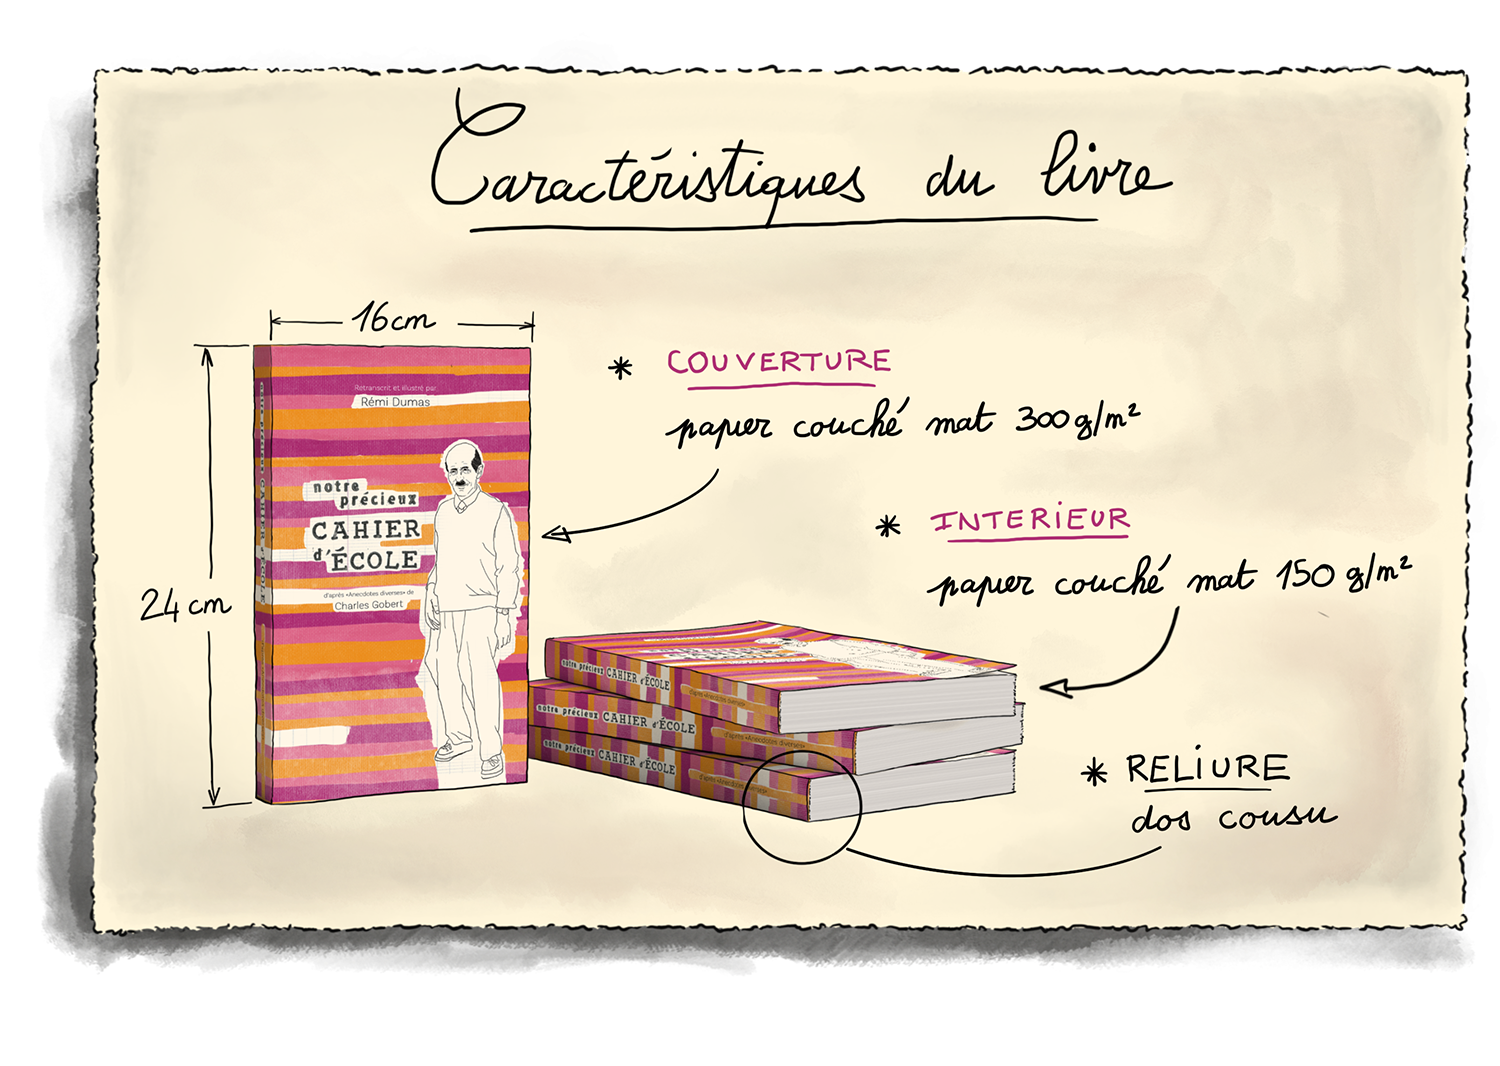 Caractéristiques du livre
16cm
24 cm
Retranscrit et illustré par
Rémi Dumas
notre
précieux
CAHIER
d'ÉCOLE
d'après «Anecdotes diverses» de
Charles Gobert
* COUVERTURE
papier couché mat 300g/m²
* INTERIEUR
papier couché mat 150 g/m²
notre précieux CAHIER d'ÉCOLE
d'après «Anecdotes diverses»
notre précieux CAHIER d'ÉCOLE
d'après «Anecdotes diverses»
notre précieux CAHIER d'ÉCOLE
d'après «Anecdotes diverses»
* RELIURE
dos cousu